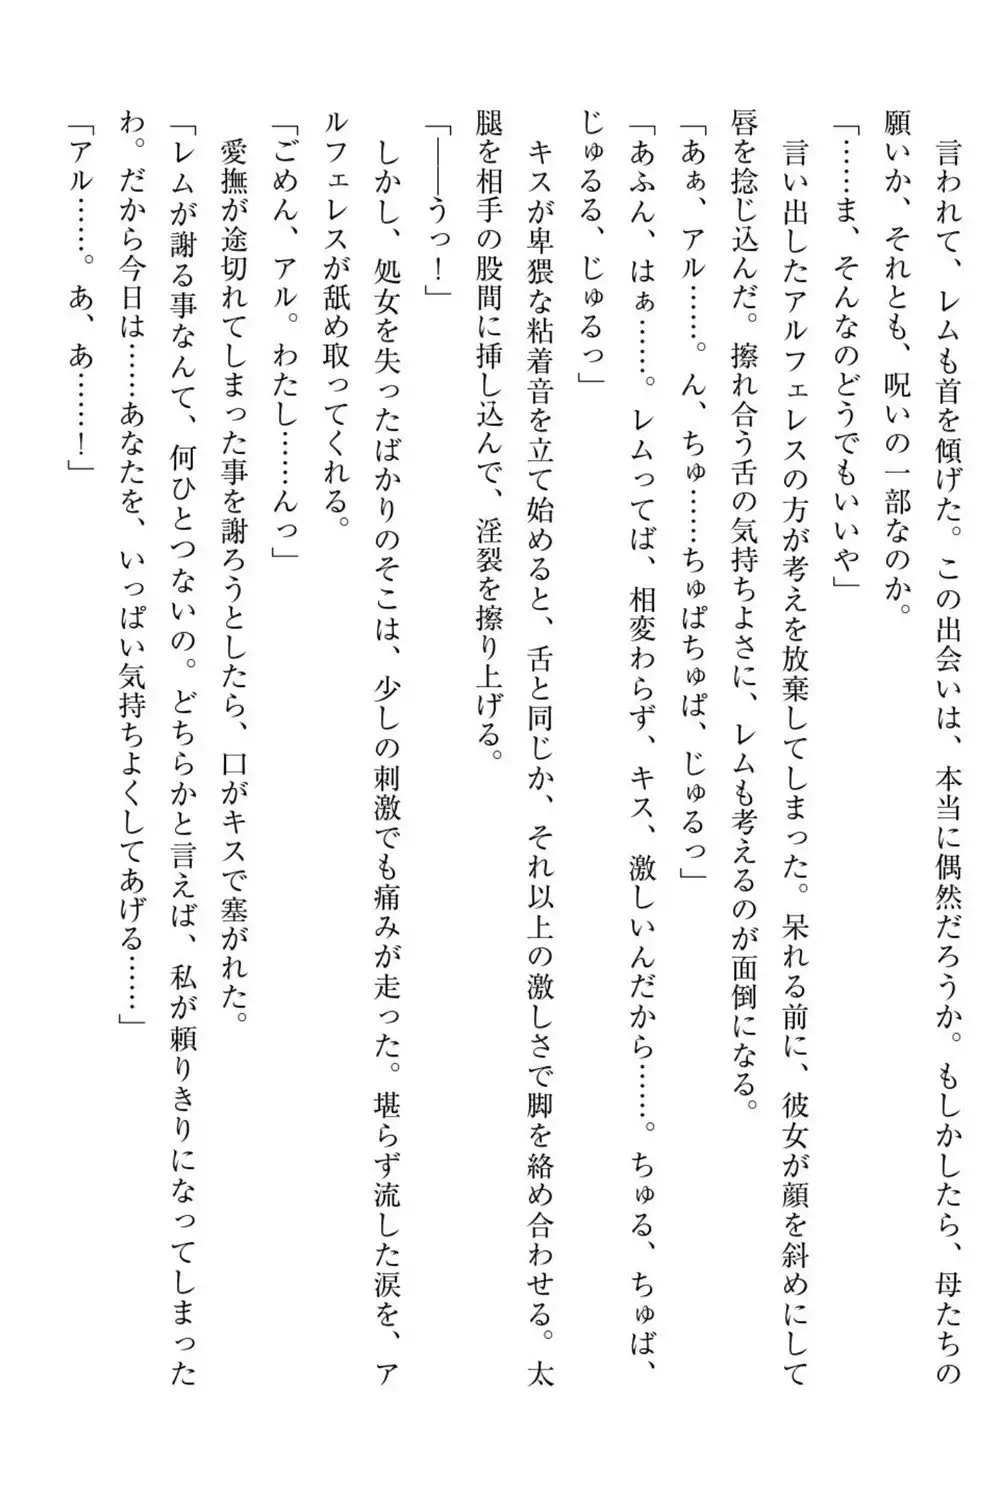 言われて、レムも首を傾げた。この出会いは、本当に偶然だろうか。もしかしたら、母たちの
願いか、それとも、呪いの一部なのか。
「……ま、そんなのどうでもいいや」
言い出したアルフェレスの方が考えを放棄してしまった。呆れる前に、彼女が顔を斜めにして
唇を捻じ込んだ。擦れ合う舌の気持ちよさに、レムも考えるのが面倒になる。
「あぁ、アル……。ん、ちゅ……ちゅぱちゅぱ、じゅるっ」
「あふん、はぁ……。レムってば、相変わらず、キス、激しいんだから……。ちゅる、ちゅば、
じゅるる、じゅるっ」
キスが卑猥な粘着音を立て始めると、舌と同じか、それ以上の激しさで脚を絡め合わせる。太
腿を相手の股間に挿し込んで、淫裂を擦り上げる。
「――うっ！」
しかし、処女を失ったばかりのそこは、少しの刺激でも痛みが走った。堪らず流した涙を、ア
ルフェレスが舐め取ってくれる。
「ごめん、アル。わたし……んっ」
愛撫が途切れてしまった事を謝ろうとしたら、口がキスで塞がれた。
「レムが謝る事なんて、何ひとつないの。どちらかと言えば、私が頼りきりになってしまった
わ。だから今日は……あなたを、いっぱい気持ちよくしてあげる……」
「アル……。あ、あ……！」